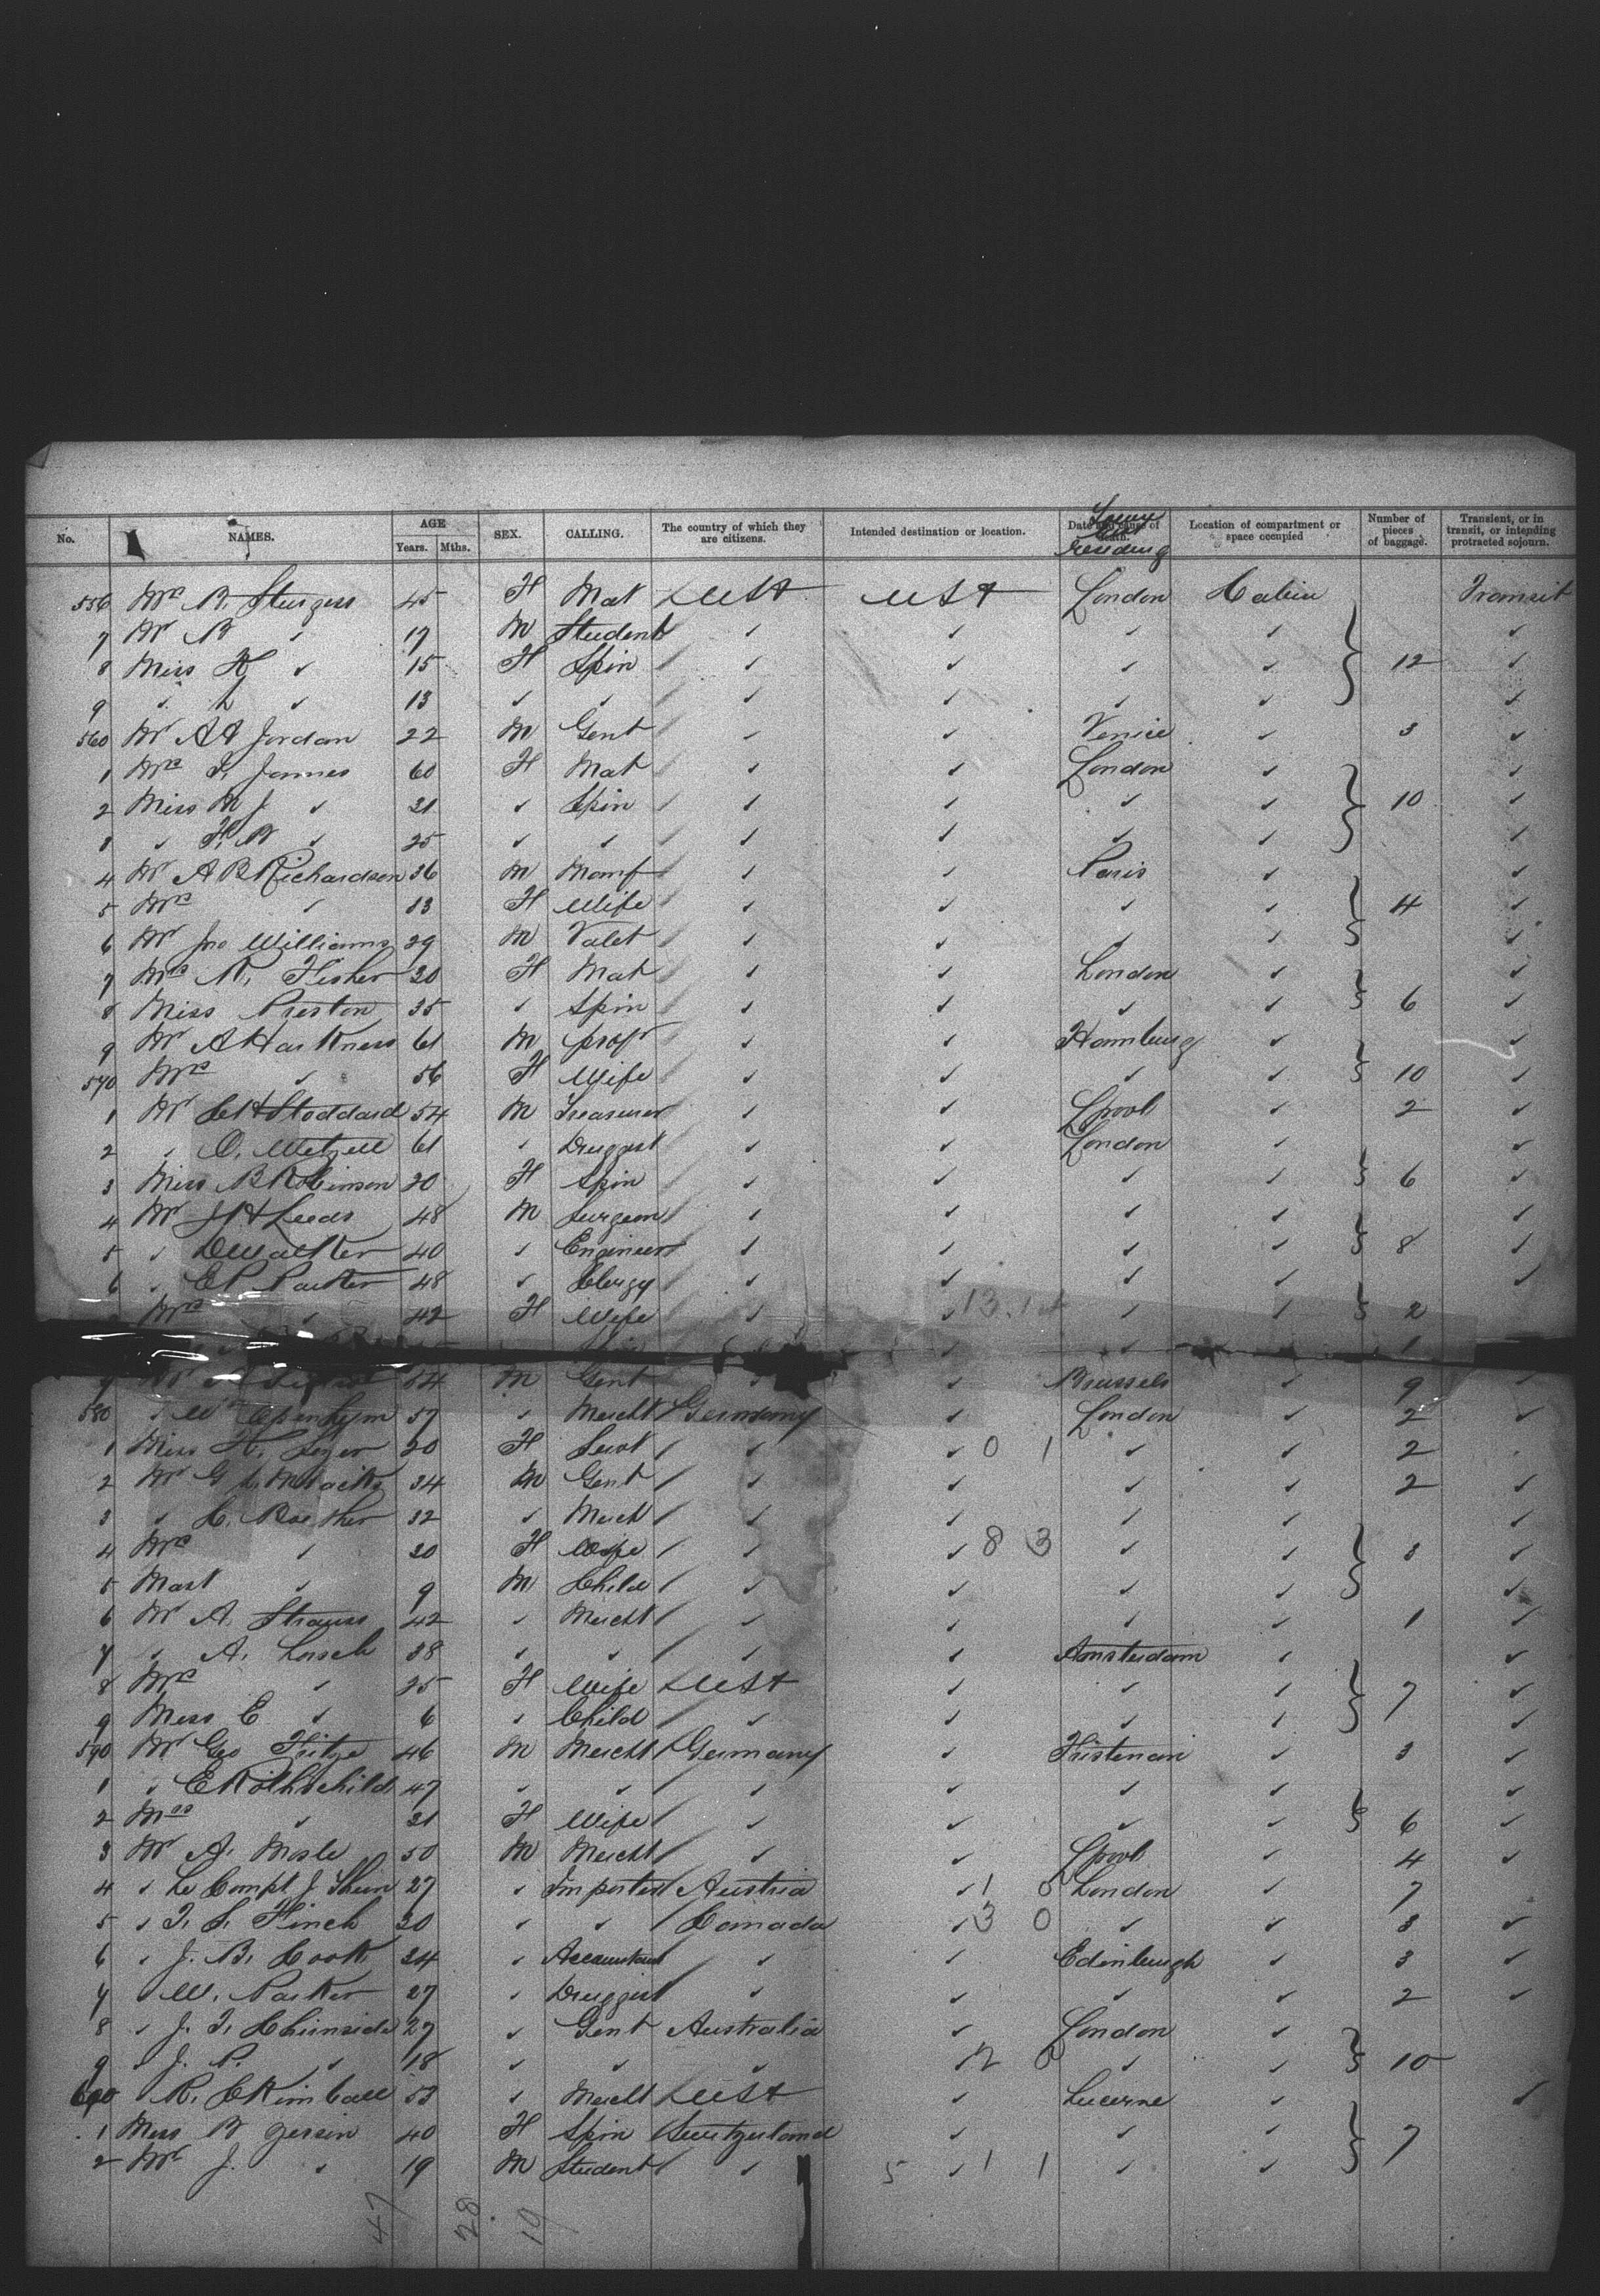 No. NAMES. AGE Years. Mths. SEX. CALLING. The country of which they are citizens. Intended destination or location. Date and cause of death. Location of compartment or space occupied Number of pieces of baggage. Transient, or in transit, or intending protracted sojourn.
residing
556 Mrs R. Sturgess 45 F Mat USA USA London Cabin Transit
7 Mr R ✓ 17 M Student ✓ ✓ ✓ ✓ ✓
8 Miss H ✓ 15 F Spin ✓ ✓ ✓ ✓ 12 ✓
9 ✓ ✓ 13 ✓ ✓ ✓ ✓ ✓ ✓ ✓
560 Mr AA Jordan 22 M Gent ✓ ✓ Venice ✓ 3 ✓
1 Mrs James 60 F Mat ✓ ✓ London ✓ ✓
2 Miss M J ✓ 21 ✓ Spin ✓ ✓ ✓ ✓ 10 ✓
3 ✓ ✓ 25 ✓ ✓ ✓ ✓ ✓ ✓ ✓
4 Mr A B Richardson 36 M Manf ✓ ✓ Paris ✓ ✓
5 Mrs ✓ 33 F Wife ✓ ✓ ✓ ✓ 4 ✓
6 Mr Jno Williams 29 M Valet ✓ ✓ ✓ ✓ ✓
7 Mrs R. Fisher 30 F Mat ✓ ✓ London ✓ ✓
8 Miss Preston 35 ✓ Spin ✓ ✓ ✓ ✓ 6 ✓
9 Mr A Harkness 61 M Prof ✓ ✓ Hamburg ✓ ✓
570 Mrs ✓ 56 F Wife ✓ ✓ ✓ ✓ 10 ✓
1 Mr C H Stoddard 54 M Treasurer ✓ ✓ Lpool ✓ 2 ✓
2 ✓ O. Metzell 61 ✓ Druggist ✓ ✓ London ✓ ✓
3 Miss B Robinson 20 F Spin ✓ ✓ ✓ ✓ 6 ✓
4 Mr J H Leeds 48 M Surgeon ✓ ✓ ✓ ✓ ✓
5 ✓ D Walker 40 ✓ Engineer ✓ ✓ ✓ ✓ 8 ✓
6 ✓ E P Parker 48 ✓ Clergy ✓ ✓ ✓ ✓ ✓
Mrs ✓ 42 F Wife ✓ ✓ 13 1 ✓ ✓ 2
✓ ✓ 1
9 Mr 54 M Gent ✓ ✓ Brussels ✓ 9 ✓
580 ✓ Wm Openhym 57 ✓ Mercht Germany ✓ London ✓ 2 ✓
1 Miss H. 20 F Servt ✓ ✓ 0 1 ✓ ✓ 2
2 Mr G 34 M Gent ✓ ✓ ✓ ✓ 2 ✓
3 ✓ C. Boether 32 ✓ Merch ✓ ✓ ✓ ✓ ✓
4 Mrs ✓ 30 F Wife ✓ ✓ 8 3 ✓ ✓ 3 ✓
5 Mast ✓ 9 M Child ✓ ✓ ✓ ✓ ✓
6 Mr A. Strauss 42 ✓ Mercht ✓ ✓ ✓ ✓ 1 ✓
7 ✓ A. Lorsch 38 ✓ ✓ ✓ ✓ Amsterdam ✓ ✓
8 Mrs ✓ 25 F Wife USA ✓ ✓ ✓ 7 ✓
9 Miss E ✓ 6 ✓ Child ✓ ✓ ✓ ✓ ✓
590 Mr Geo Fritze 46 M Mercht Germany ✓ ✓ 3 ✓
1 ✓ E Rothschild 47 ✓ ✓ ✓ ✓ ✓ ✓ ✓
2 Mrs ✓ 31 F Wife ✓ ✓ ✓ ✓ 6 ✓
3 Mr A. Mosle 50 M Mercht ✓ ✓ Lpool ✓ 4 ✓
4 ✓ Le Compt J Thun 27 ✓ Importer Austria ✓ 1 0 London ✓ 7
5 ✓ Finch 30 ✓ ✓ Canada ✓ 3 0 ✓ ✓ 3 ✓
6 ✓ J. B. Cook 24 ✓ Accountant ✓ ✓ Edinburgh ✓ 3 ✓
7 ✓ W. Parker 27 ✓ Druggist ✓ ✓ ✓ 2 ✓
8 ✓ Chirnside 27 ✓ Gent Australia ✓ London ✓
9 ✓ J. P. ✓ 18 ✓ ✓ ✓ ✓ 2 0 ✓ ✓ 10
600 R. C Kimball 53 ✓ Mercht USA ✓ Lucerne ✓ ✓
1 Miss B Yersin 40 F Spin Switzerland ✓ ✓ ✓ 7
2 Mr J. ✓ 19 M Student ✓ 5 ✓ 1 1 ✓ ✓
47 28. 19